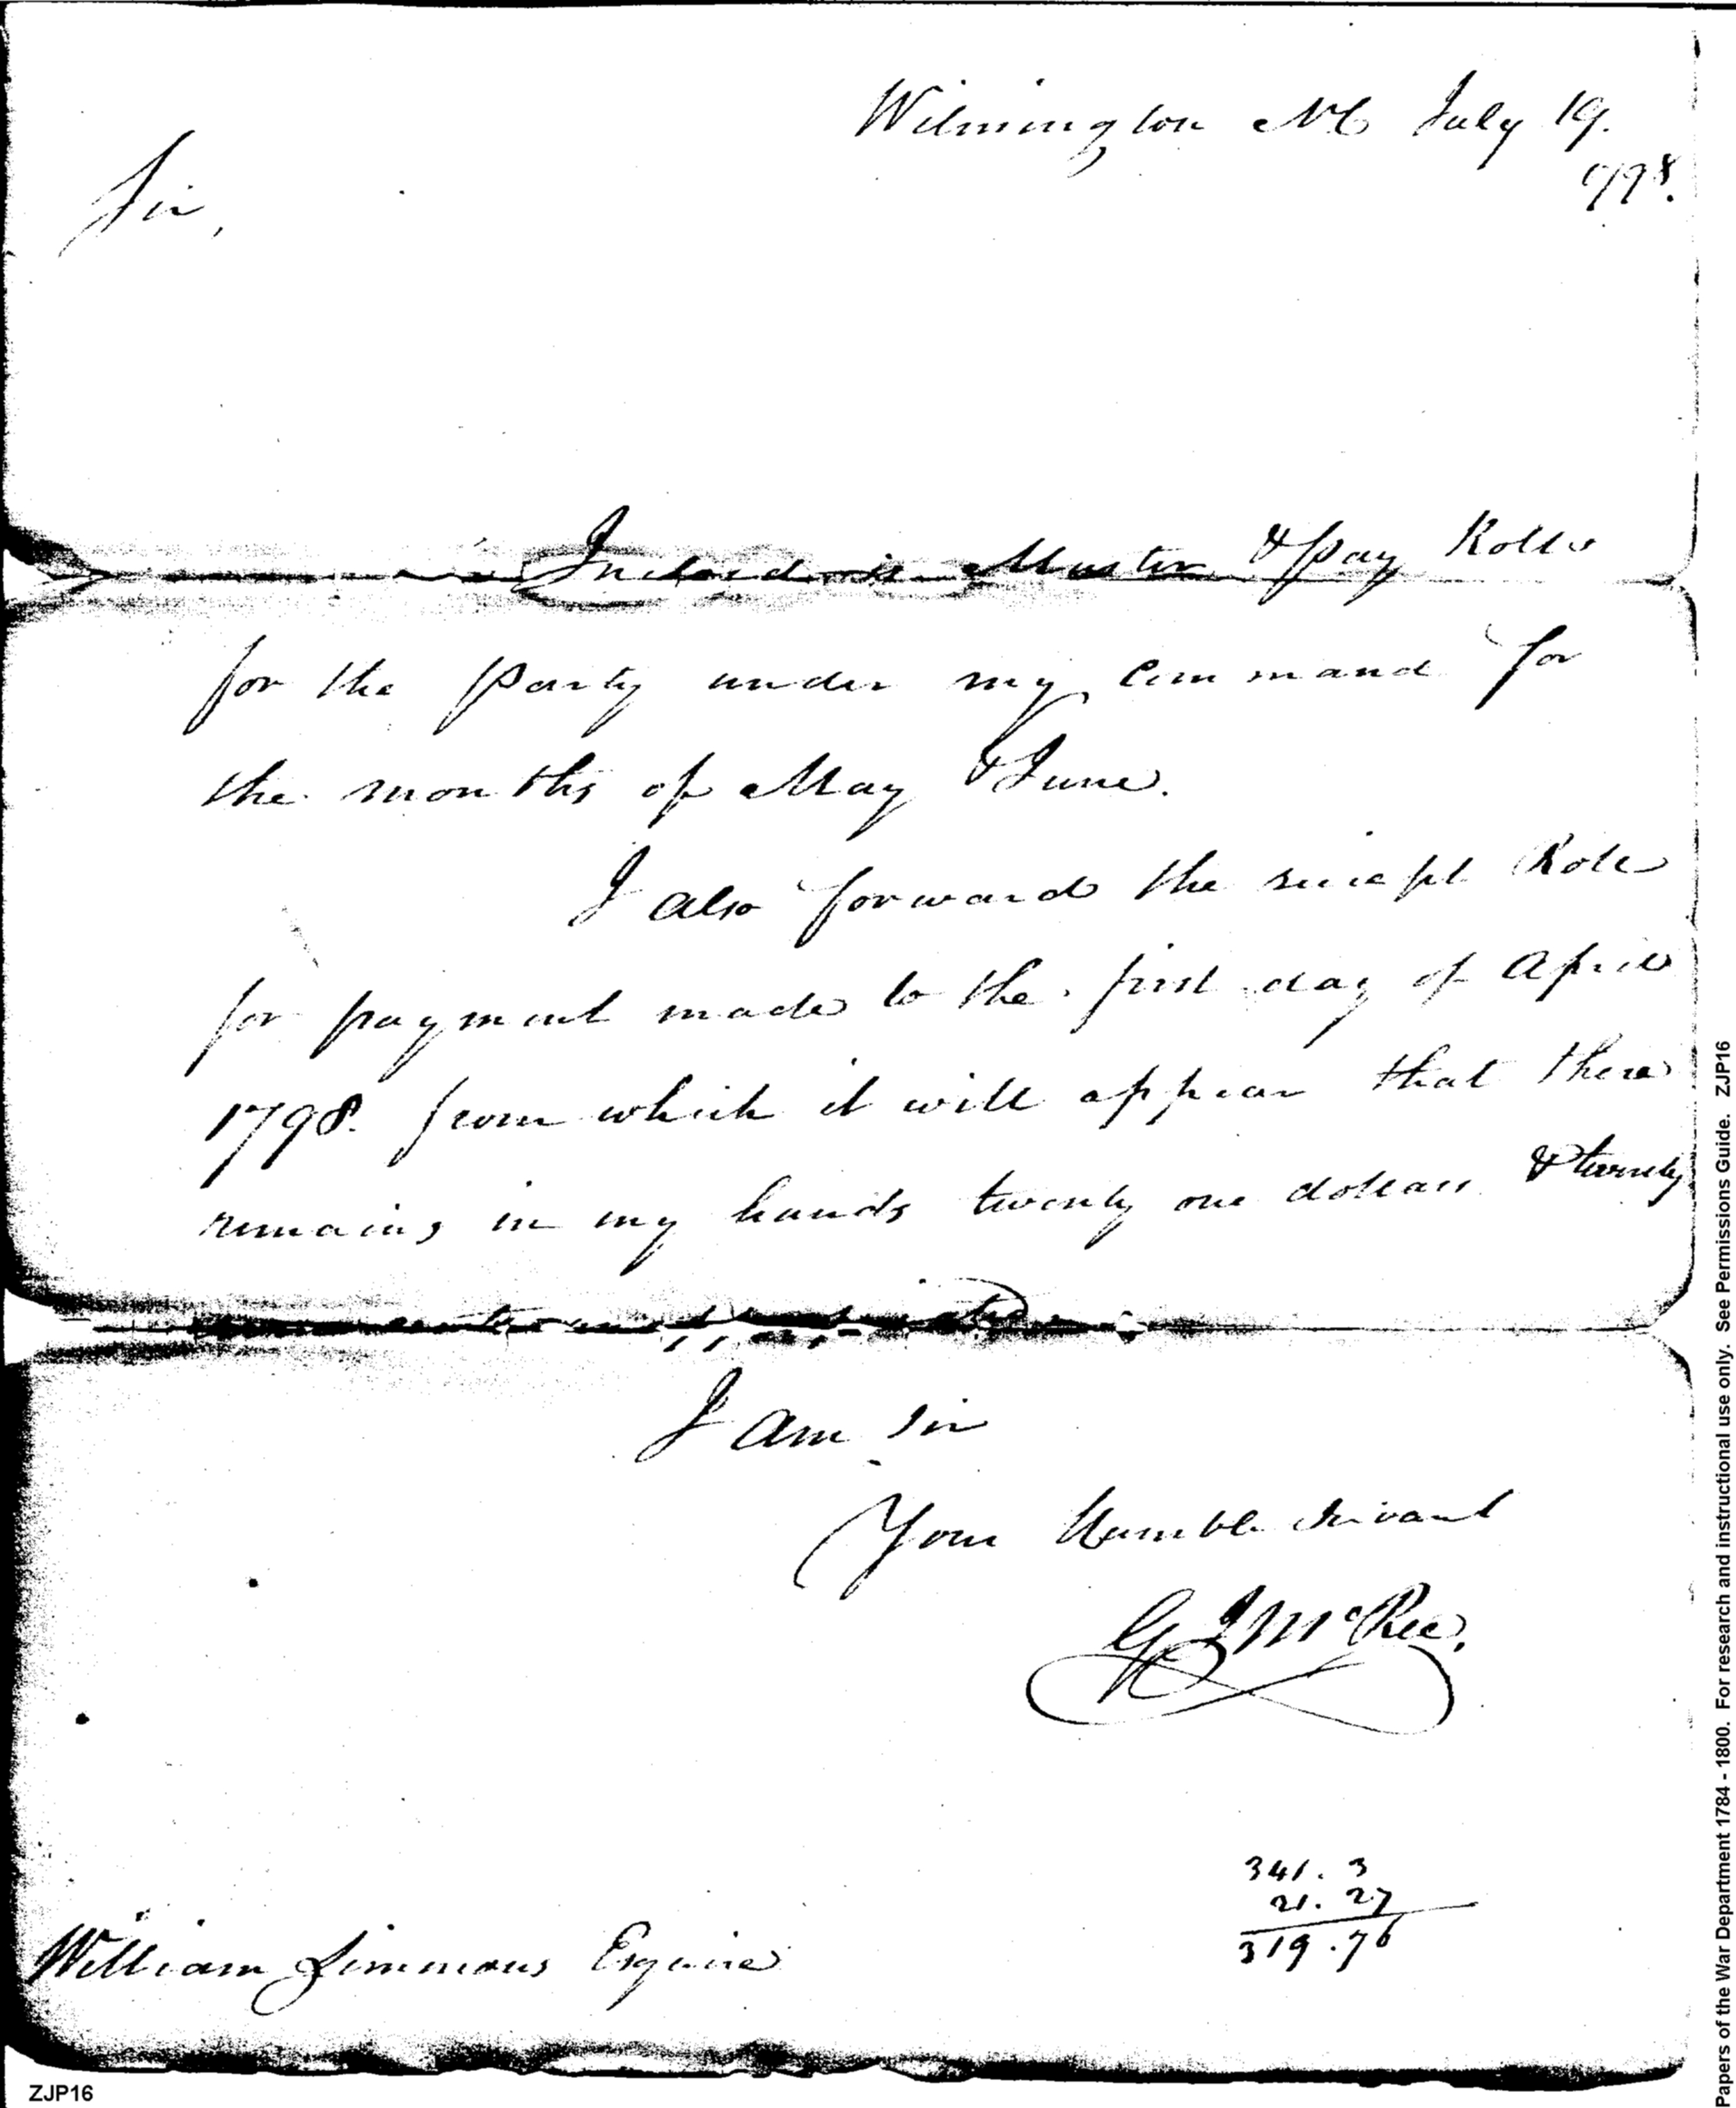 Wilmington NC July 19.
1798.
Sir,
Inclosed is Muster & pay Rolls
for the Party under my command for
the months of May & June.
I also forward the receipt Role
for payment made to the first day of April
1798. from which it will appear that there
remains in my hands twenty one dollars & twenty
I am Sir
Your Humble Servant
G J McRee.
341. 3
21. 27
319.76
William Simmons Esquire
ZJP16
Papers of the War Department 1784 - 1800. For research and instructional use only. See Permissions Guide. ZJP16